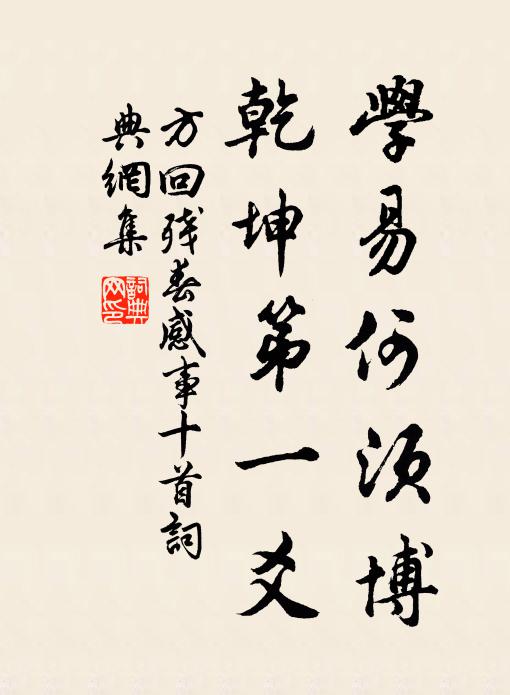 學易何須博
乾坤第一爻
方回殘春感事十首詞
典網集
詞典
网印